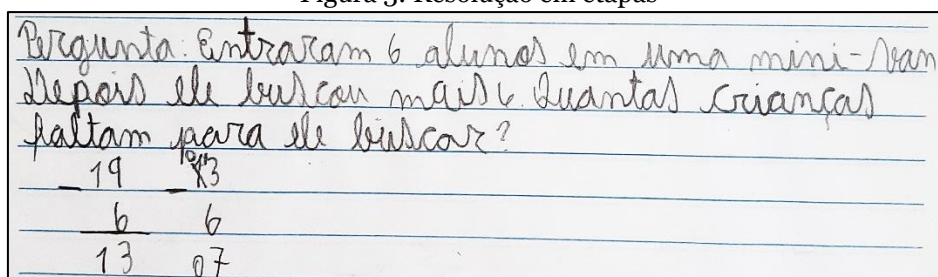 Figura 3. Resolução em etapas
Pergunta: Entraram 6 alunos em uma mini-van
Depois ele buscou mais 6. Quantas crianças
faltam para ele buscar?
- 19 - 13
6 6
13 07